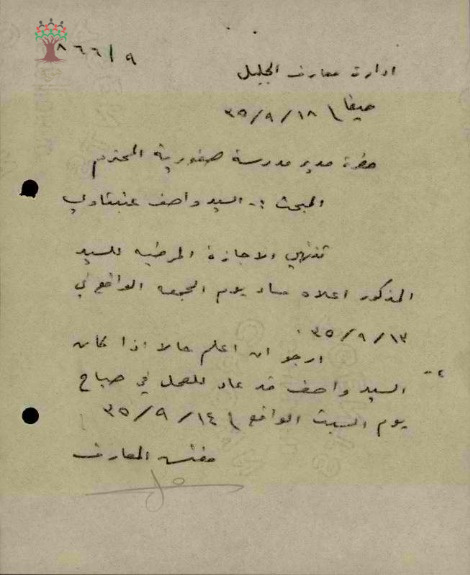 ٩/٨٦٦
ادارة معارف الجليل
حيفا \ ١٨/٩/٣٥
حضرة مدير مدرسة صفورية المحترم
المبحث :- السيد واصف عنبتاوي
تنتهي الاجازة المرضيه للسيد
المذكور اعلاه مساء يوم الجمعه الواقع في
١٣/٩/٣٥.
٢- ارجو ان اعلم حالا اذا كان
السيد واصف قد عاد للعمل في صباح
يوم السبت الواقع \ ١٤/٩/٣٥
مفتش المعارف